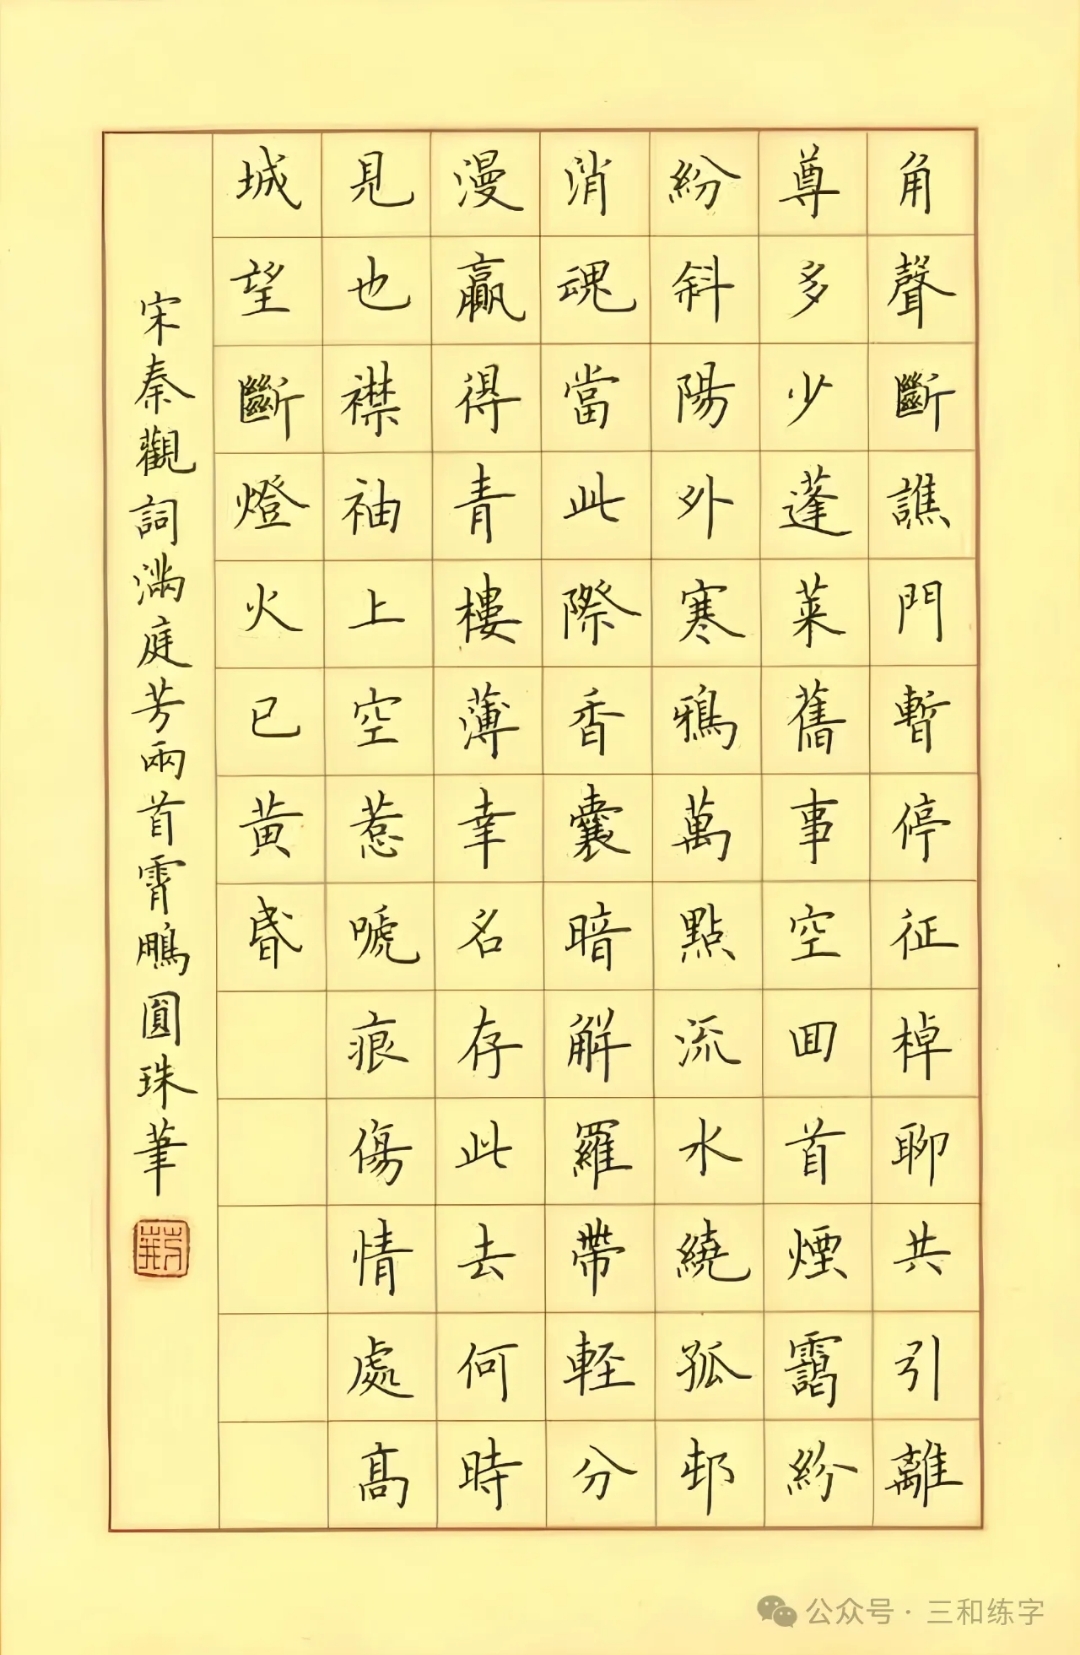 角聲斷譙門暫停征棹聊共引離
尊多少蓬萊舊事空回首煙靄紛
紛斜陽外寒鴉萬點流水繞孤邨
消魂當此際香囊暗解羅帶輕分
漫贏得青樓薄幸名存此去何時
見也襟袖上空惹嗁痕傷情處高
城望斷燈火已黃昏
宋秦觀詞滿庭芳兩首霄鵬圓珠筆
公众号·三和练字